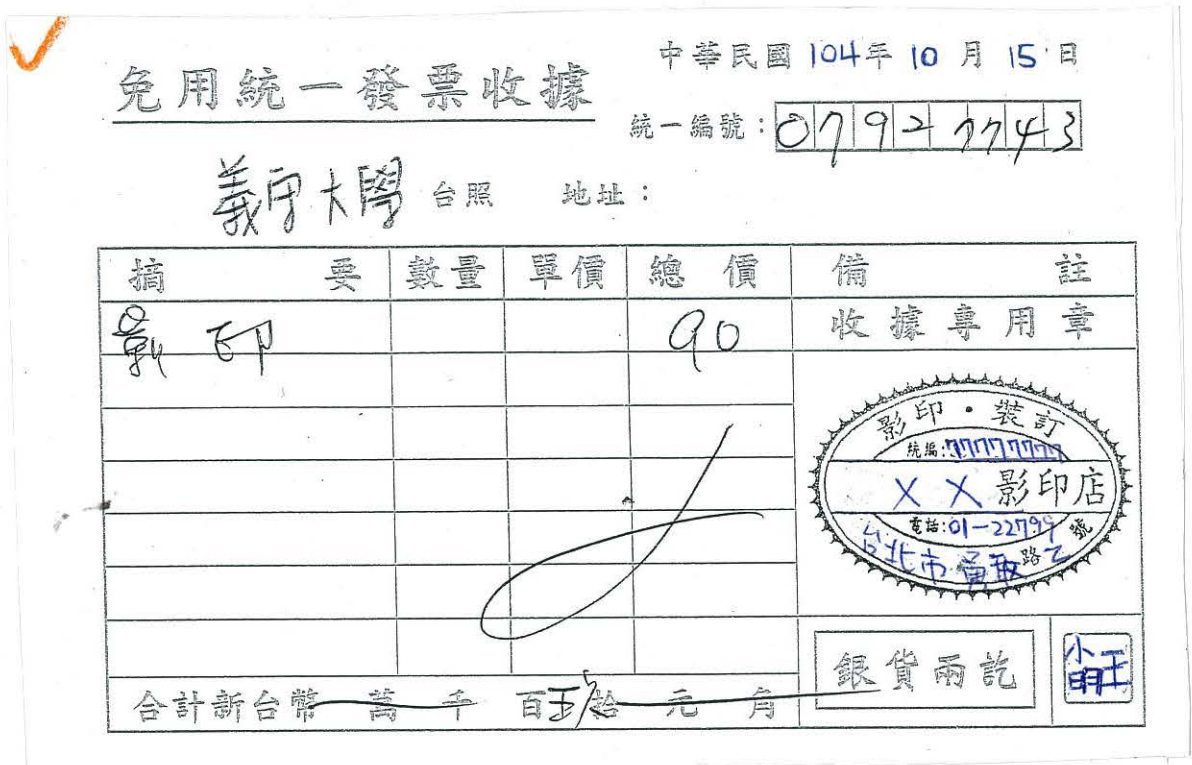 中華民國 104年 10 月 15 日
免用統一發票收據
統一編號：07927743
義守大學 台照 地址：
摘要 數量 單價 總價 備註
影印 90 收據專用章
影印・裝訂
統編:77777777
XX影印店
電話:01-22799
台北市勇敢路乙號
銀貨兩訖
小明王
合計新台幣 萬 千 百 拾 元 角